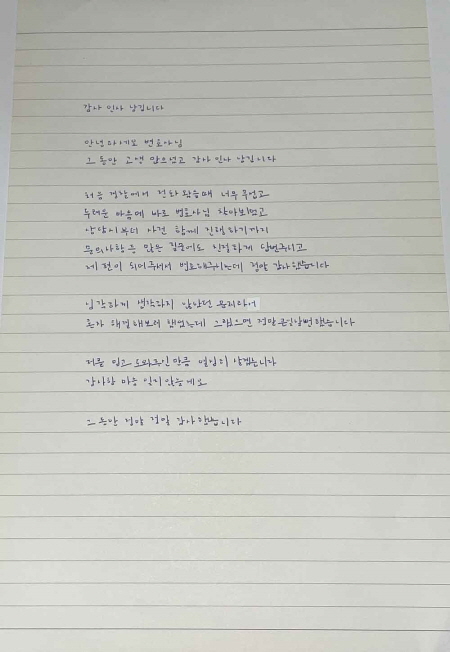 감사 인사 남깁니다
안녕하세요 변호사님
그동안 고생 많으셨고 감사 인사 남깁니다
처음 경찰에서 전화 왔을때 너무 무섭고
두려운 마음에 바로 변호사님 찾아뵈었고
상담시부터 사건 함께 진행하기까지
문의사항 등 많은 질문에도 친절하게 답변주시고
제 편이 되어주셔서 변호해주시는데 정말 감사했습니다
심각하게 생각하지 않았던 문제라서
혼자 해결해보려 했었는데 그랬으면 정말 큰일날뻔 했습니다
저를 믿고 도와주신 만큼 열심히 살겠습니다
감사한 마음 잊지 않을게요
그동안 정말 정말 감사했습니다